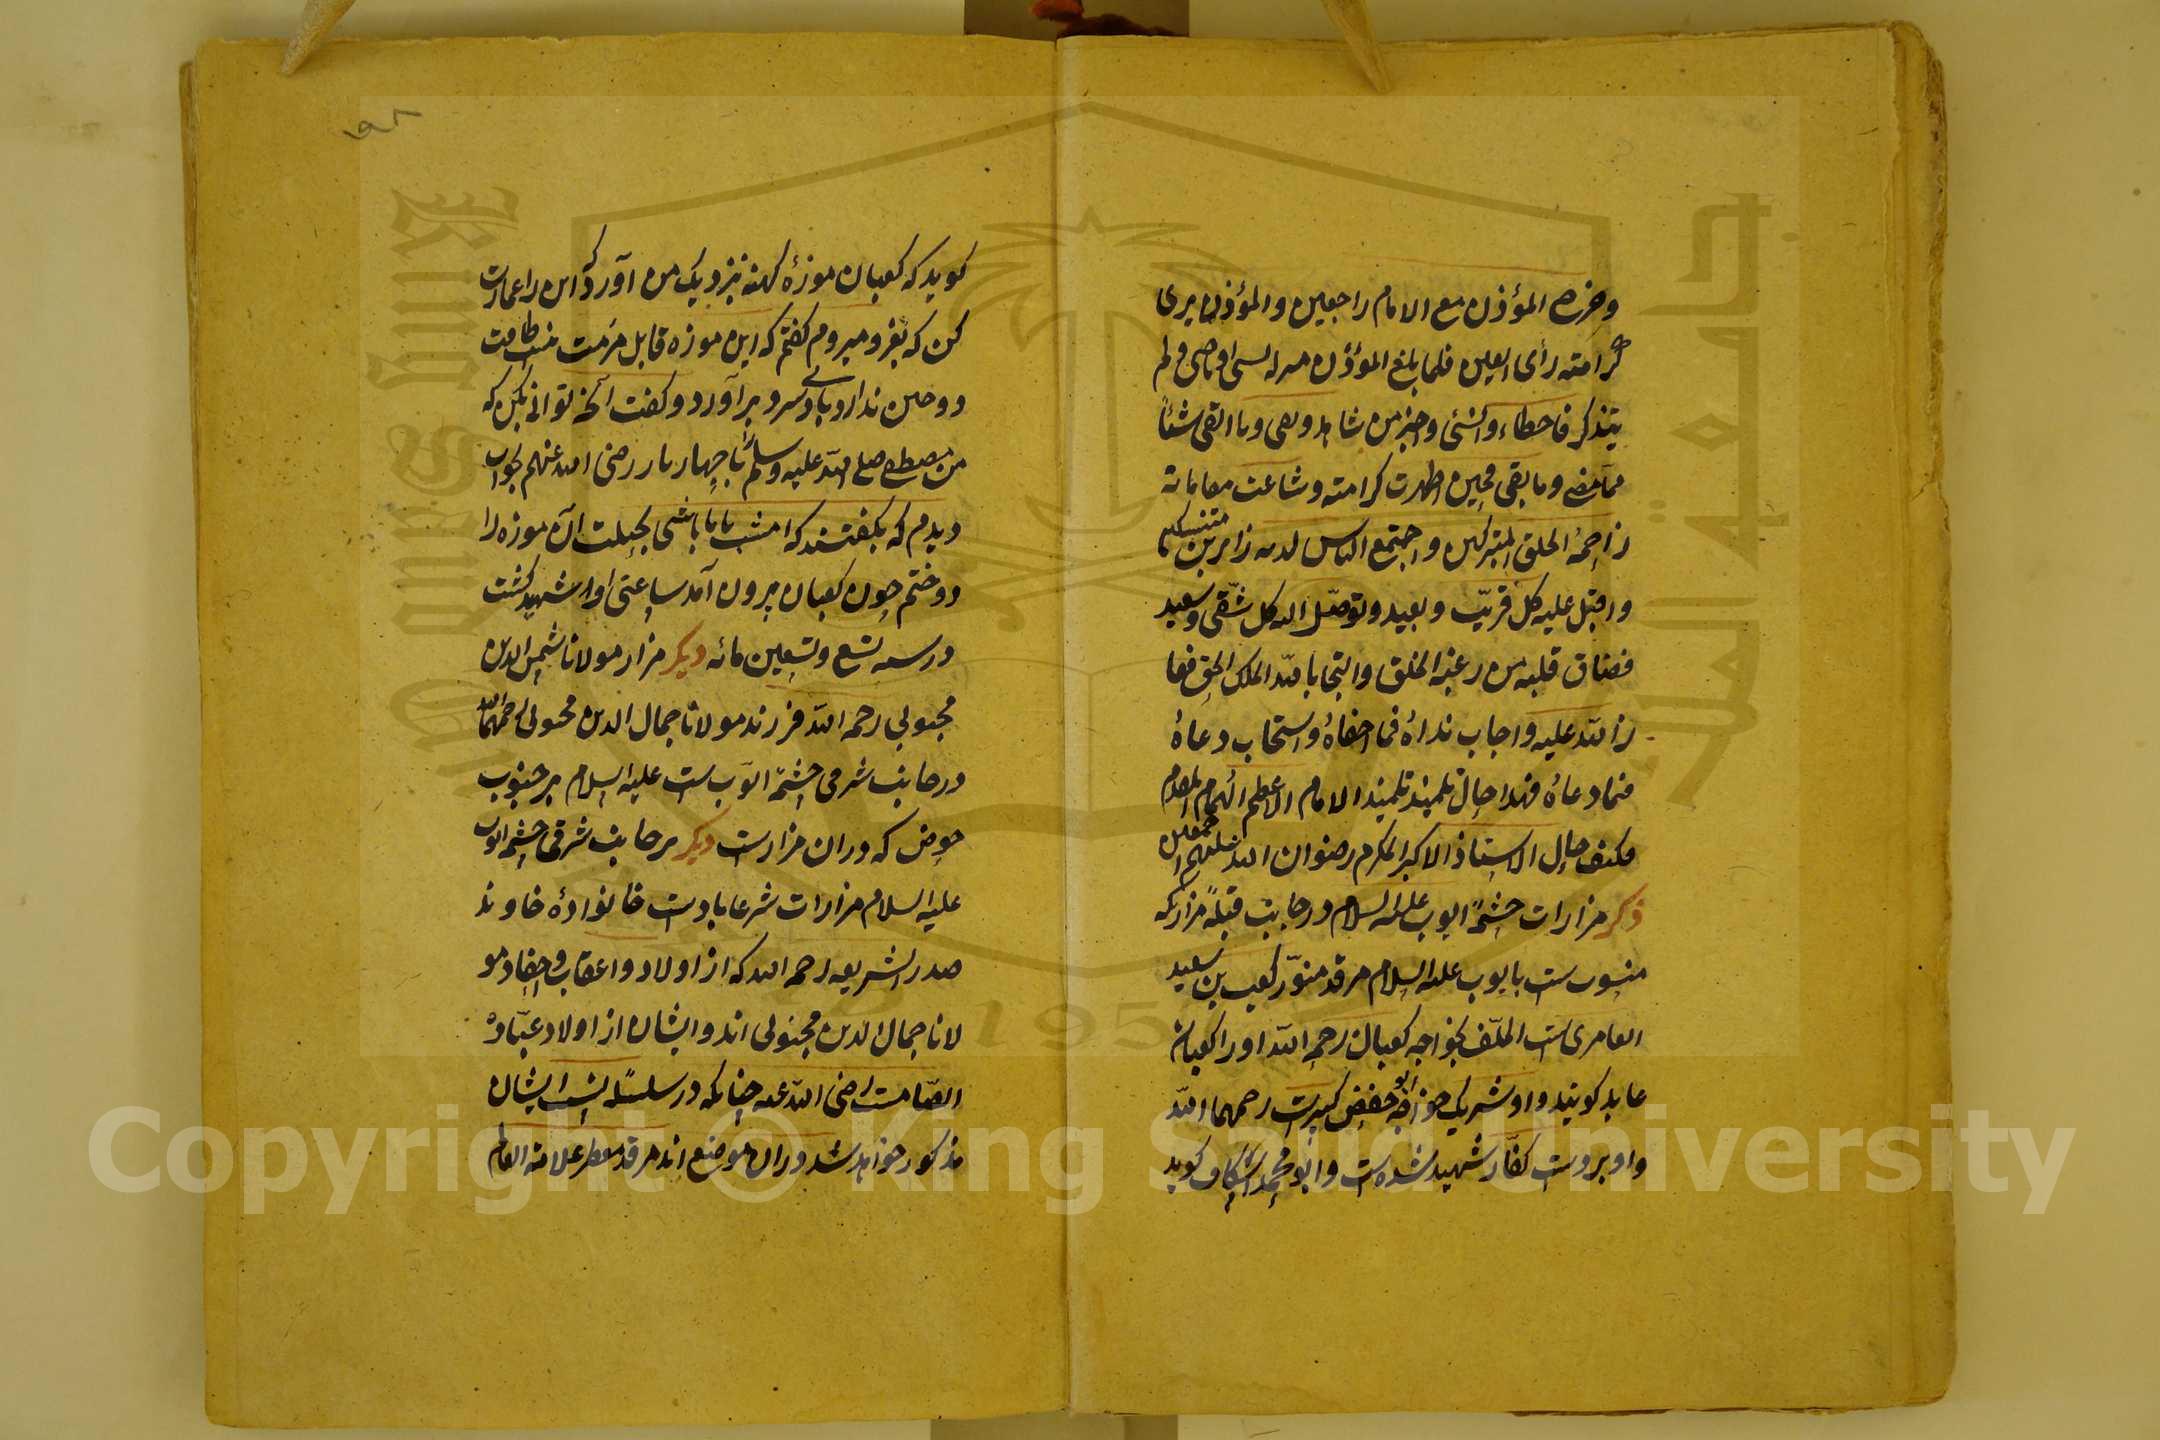 وخرج المؤذن مع الامام راجعين والمؤذن يرى
كرامته رأى العين فلما بلغ المؤذن
يتذكر
مما مضى وما بقى فحين اظهرت كرامته وشاعت معاملته
زاحمه الخلق المتبركين واجتمع الناس لديه زائرين متمسكين
واقبل عليه كل قريب وبعيد وتوصل اليه كل شقى وسعيد
فضاق قلبه من رغبة الخلق والتجا بالله الملك الحق
الله عليه واجاب نداءه فما اخفاه واستجاب دعاءه
فهذا حال تلميذ تلميذ الامام الاعظم الهمام المقدم
فكيف حال الاستاذ الاكبر المكرم رضوان الله عليهم اجمعين
ذكر مزارات چشمۀ ايوب عليه السلام در جانب قبلۀ مزاريكه
منسوب ست بايوب عليه السلام مرقد منور كعب بن سعيد
العامرى ست الملقب بخواجه كعبان رحمه الله اورا كعبان
عابد كويند واو شريك خواجه ابو حفص كبيرست رحمهما الله
واو بردست كفار شهيد شده ست وابو محمد اسكاف كويد
١٥٨
كويد كه كعبان موزۀ كهنه نزديك من آورد كه اين را عمارت
كن كه بغزو ميروم كفتم كه اين موزه قابل مرمت نيست طاقت
دوختن ندارد بادى سرد برآورد وكفت آنچه توانى بكن كه
من مصطفى صلى الله عليه وسلم را با چهار يار رضى الله عنهم بخواب
ديدم كه بكفتند كه امشب با ما باشى بحيلت آن موزه را
دوختم چون كعبان بيرون آمد ساعتى اورا شهيد كشت
در سنه تسع وتسعين مائه ديكر مزار مولانا شمس الدين
محبوبى رحمه الله فرزند مولانا جمال الدين محبوبى رحمهما الله
در جانب شرقى چشمۀ ايوب ست عليه السلام بر جنوب
حوض كه در ان مزارست ديكر بر جانب شرقى چشمه ايوب
عليه السلام مزارات شرعاباد ست خانوادۀ خاوند
صدر الشريعه رحمه الله كه از اولاد واعقاب واحفاد مو
لانا جمال الدين محبوبى اند وايشان از اولاد عبادة
الصامت رضى الله عنه چنانكه در سلسلۀ نسب ايشان
مذكور خواهد شد در ان موضع اند مرقد معطر علامة العالم
Copyright © King Saud University
King Saud University
جامعة الملك سعود
195